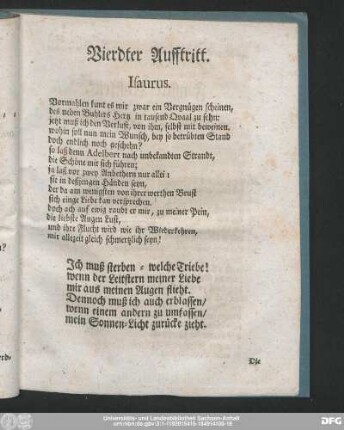 Vierdter Aufftritt.
Isaurus.
Vormahlen kunt es mir zwar ein Vergnügen scheinen,
des neben Buhlers Hertz in tausend Quaal zu sehn:
jetzt muß ich den Verlust, von ihm, selbst mit beweinen.
wohin soll nun mein Wunsch, bey so betrübten Stand
doch endlich noch geschehn?
so laß denn Adelbort nach unbekandten Strande,
die Schöne mit sich führen;
ja laß vor zwey Anbethern nur allei:
sie in deßjengen Händen seyn,
der da am wenigsten von ihrer werthen Brust
sich einge Liebe kan versprechen.
doch ach auf ewig raubt er mir, zu meiner Pein,
die liebste Augen Lust,
und ihre Flucht wird wie ihr Wiederkehren,
mir allezeit gleich schmertzlich seyn?
Ich muß sterben = welche Triebe!
wenn der Leitstern meiner Liebe
mir aus meinen Augen flieht.
Dennoch muß ich auch erblassen/
wenn einem andern zu umfassen/
mein Sonnen-Licht zurücke zieht.
Die
n?
erd-
Universitäts- und Landesbibliothek Sachsen-Anhalt
DFG